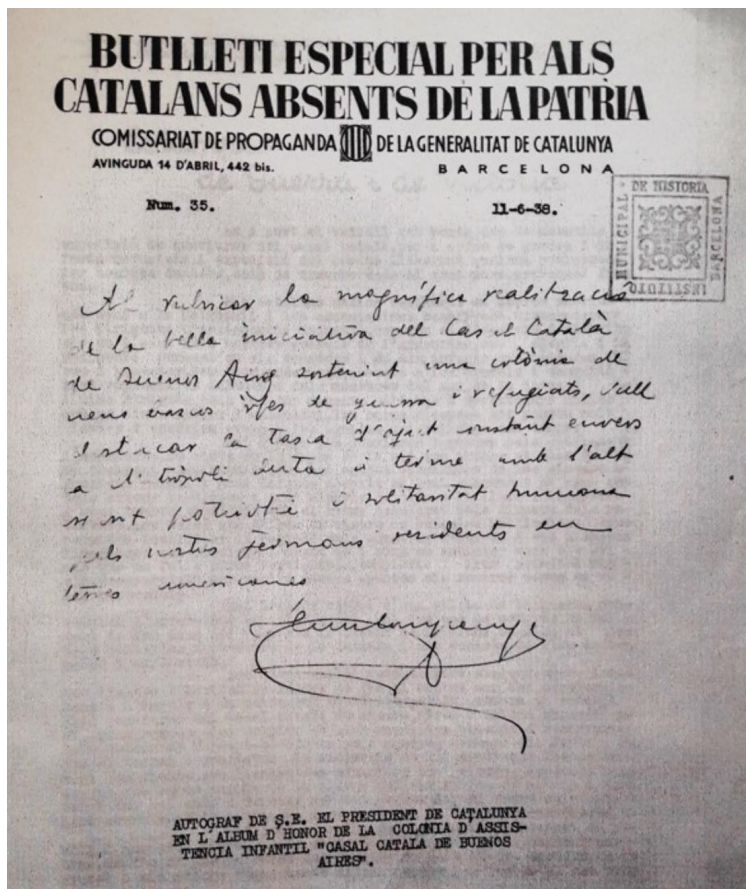 BUTLLETI ESPECIAL PER ALS
CATALANS ABSENTS DE LA PATRIA
COMISSARIAT DE PROPAGANDA DE LA GENERALITAT DE CATALUNYA
AVINGUDA 14 D'ABRIL, 442 bis.
BARCELONA
Num. 35.
11-6-38.
INSTITUTO MUNICIPAL DE HISTORIA BARCELONA
Al rubricar la magnífica realització
de la bella iniciativa del Casal Català
de Buenos Aires sostenint una colònia de
nens bascos orfes de guerra i refugiats, vull
destacar la tasca d'ajut constant envers
a la duta a terme amb l'alt
sent patriòtic i solitaritat humana
pels nostres germans residents en
terres americanes
AUTOGRAF DE S.E. EL PRESIDENT DE CATALUNYA
EN L'ALBUM D'HONOR DE LA COLONIA D'ASSIS-
TENCIA INFANTIL "CASAL CATALA DE BUENOS
AIRES".